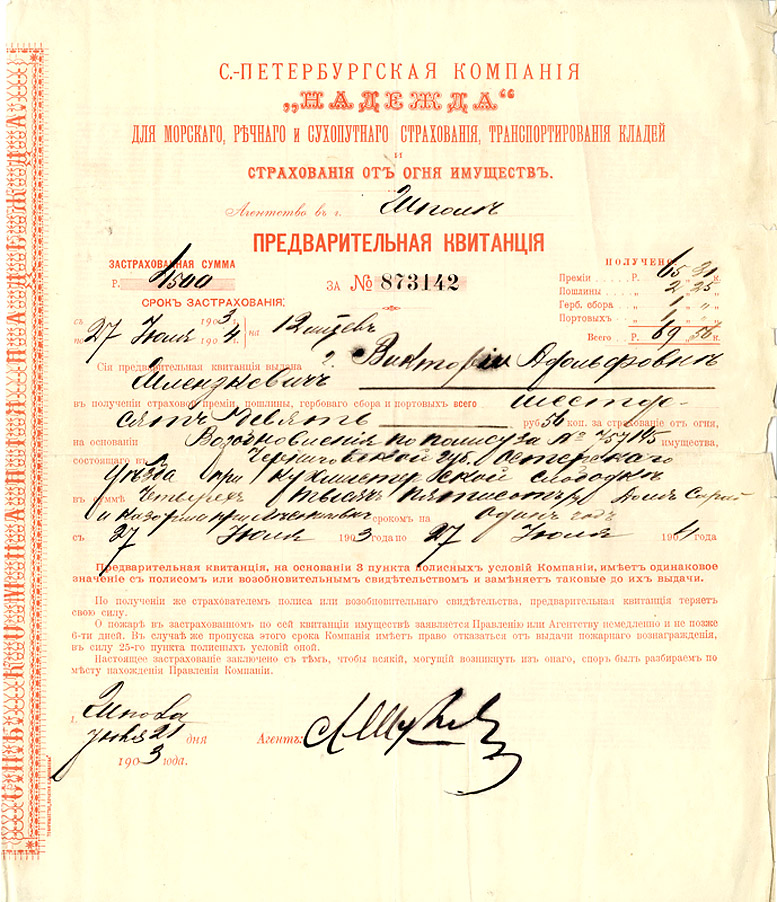 С.-ПЕТЕРБУРГСКАЯ КОМПАНІЯ
„НАДЕЖДА“
ДЛЯ МОРСКАГО, РѢЧНАГО И СУХОПУТНАГО СТРАХОВАНІЯ, ТРАНСПОРТИРОВАНІЯ КЛАДЕЙ
И
СТРАХОВАНІЯ ОТЪ ОГНЯ ИМУЩЕСТВЪ.
Агентство въ г.
ПРЕДВАРИТЕЛЬНАЯ КВИТАНЦІЯ
ЗАСТРАХОВАННАЯ СУММА
Р. 4500
ЗА № 873142
ПОЛУЧЕНО
Преміи . . . . Р. 65 31 к.
Пошлины . . . „ 2 25 „
Герб. сбора . . „ 1 „ „
Портовыхъ . . „ 1 „ „
Всего . . Р. 69 56 к.
СРОКЪ ЗАСТРАХОВАНІЯ:
съ 27 Іюля 1903 г.
по 1904 г. на 12 мѣсяцевъ
Сія предварительная квитанція выдана г. Викторіи Адольфовнѣ
въ полученіи страховой преміи, пошлины, гербоваго сбора и портовыхъ всего шестьде-
сятъ девять руб. 56 коп. за страхованіе отъ огня,
на основаніи Возобновленія по полису за № 757145 имущества,
состоящаго въ Черниговской губ. Остерскаго
уѣзда при Кухмистерской слободкѣ
въ суммѣ Четырехъ тысячъ пятисотъ р.
срокомъ на одинъ годъ
съ 27 Іюля 1903 года по 27 Іюля 1904 года
Предварительная квитанція, на основаніи 3 пункта полисныхъ условій Компаніи, имѣетъ одинаковое
значеніе съ полисомъ или возобновительнымъ свидѣтельствомъ и замѣняетъ таковые до ихъ выдачи.
По полученіи же страхователемъ полиса или возобновительнаго свидѣтельства, предварительная квитанція теряетъ
свою силу.
О пожарѣ въ застрахованномъ по сей квитанціи имуществѣ заявляется Правленію или Агентству немедленно и не позже
6-ти дней. Въ случаѣ же пропуска этого срока Компанія имѣетъ право отказаться отъ выдачи пожарнаго вознагражденія,
въ силу 25-го пункта полисныхъ условій оной.
Настоящее застрахованіе заключено съ тѣмъ, чтобы всякій, могущій возникнуть изъ онаго, споръ былъ разбираемъ по
мѣсту нахожденія Правленія Компаніи.
г. Шпола
21 дня
1903 года.
Агентъ:
СПБ. КОМПАНІЯ НАДЕЖДА